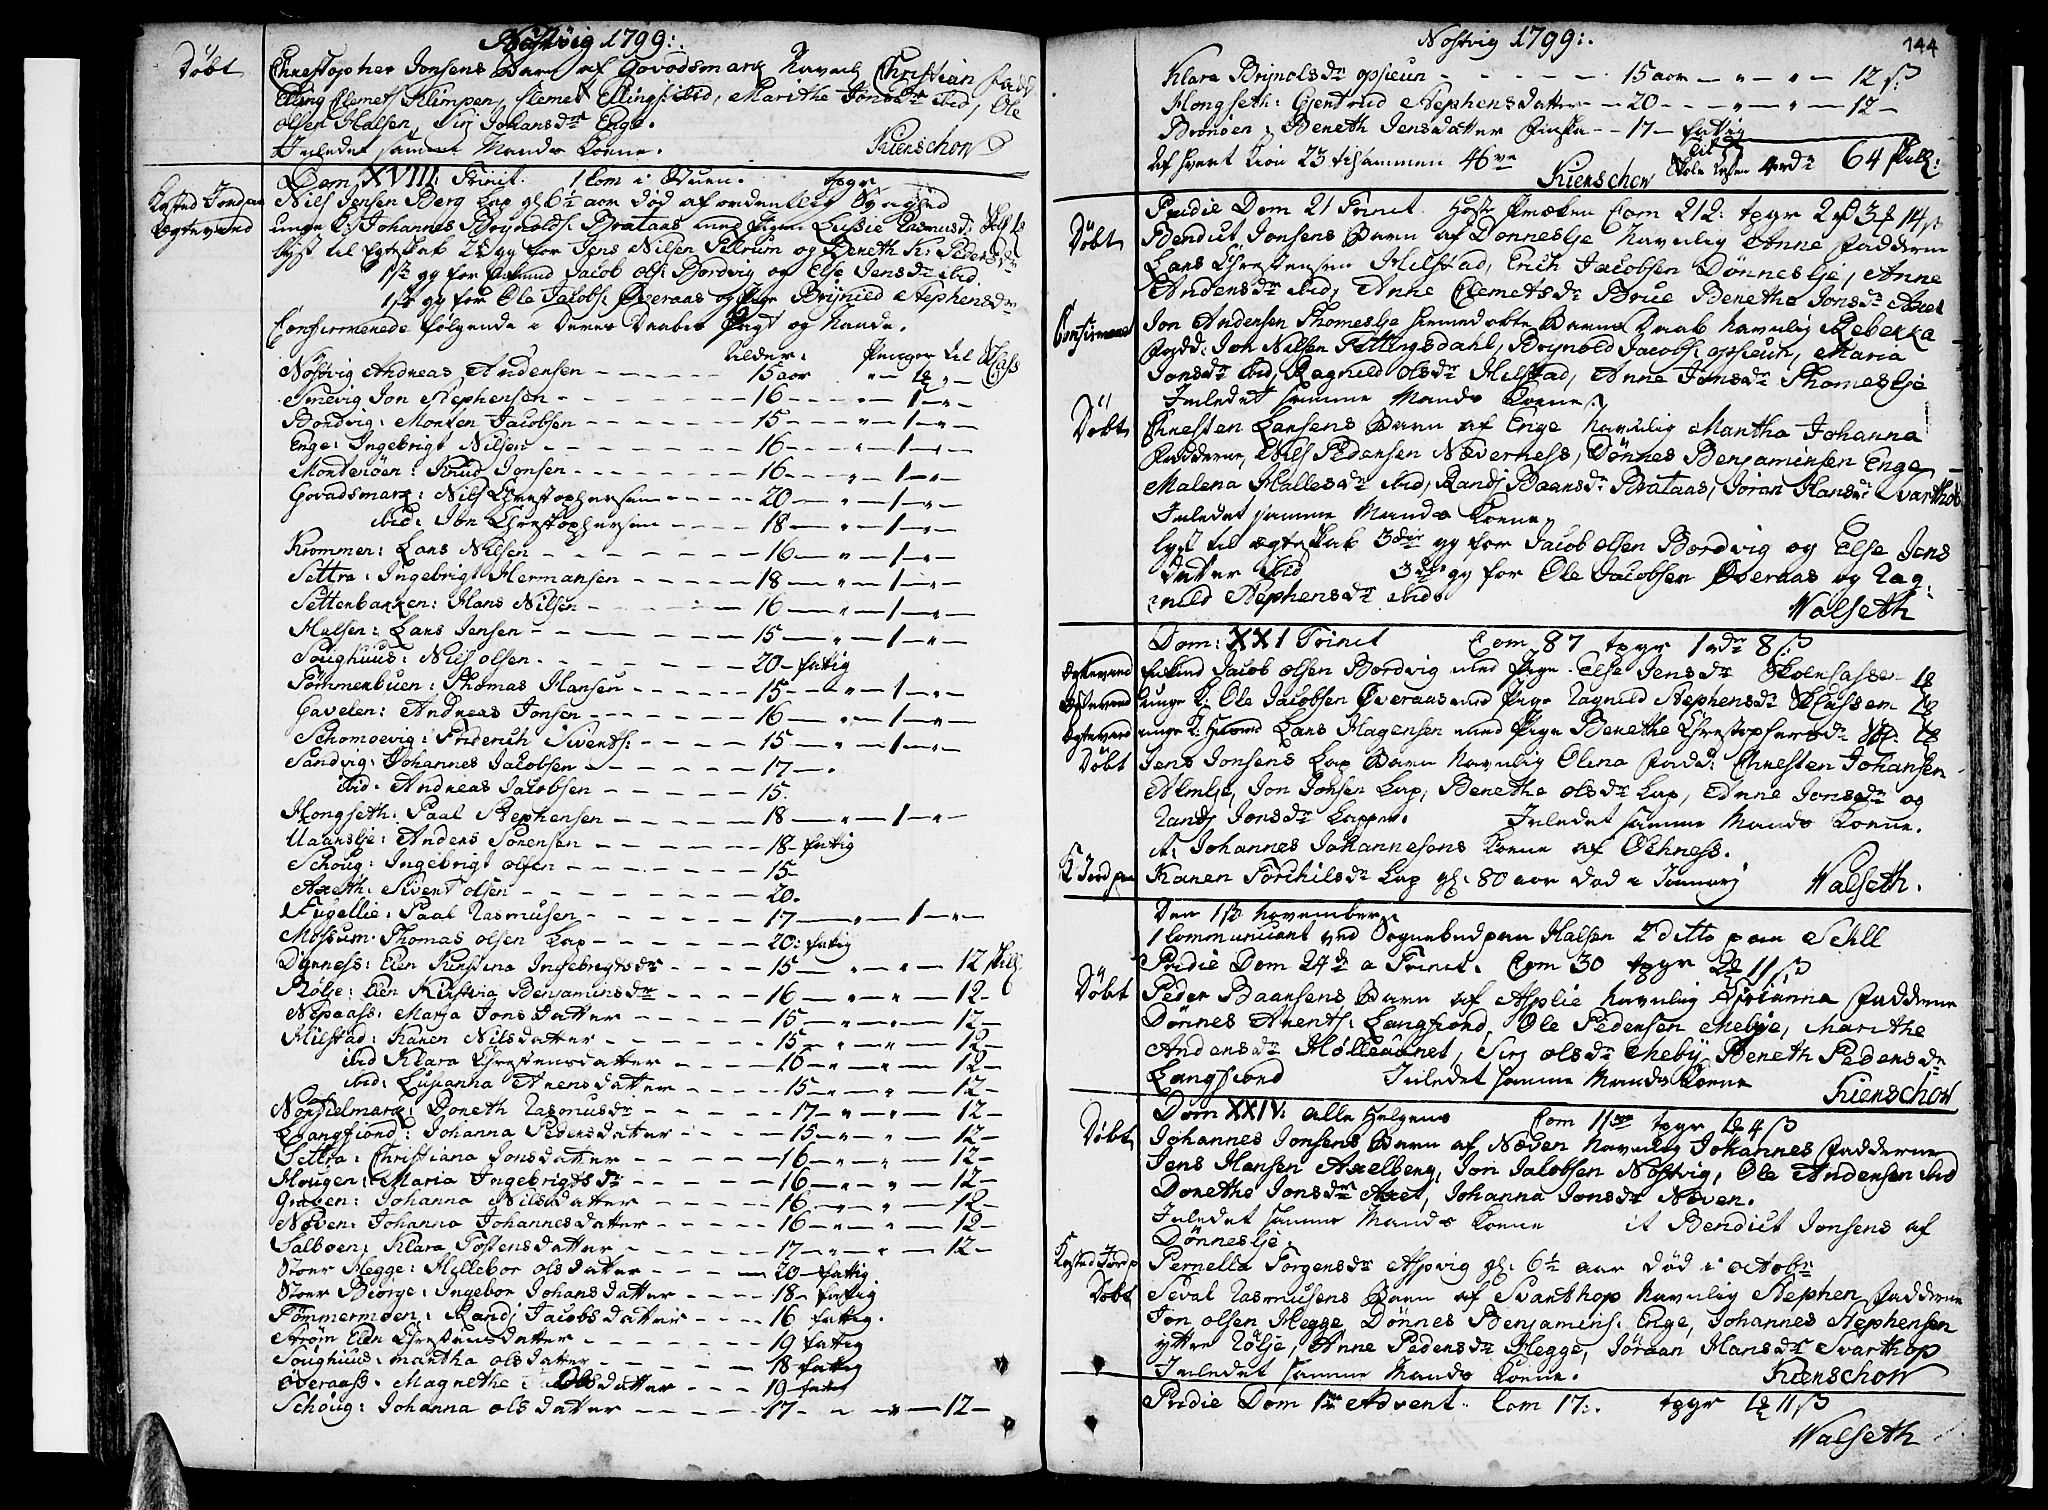 Nøstvig 1799:.
Døbt
Christopher Jonsens Barn af Govadsmark Navnl Christian Fadd
Elling Clemets: Klimpen, Clemet Ellings: ibid, Marithe Jonsdr ibid, Ole
Olsen Halsen, Siri Johansdr Enge.
Inledet samme Mands Kone. Kierschow
Dom XVIII Trinit. 1 Com i Stuen. tpgr
Kasted Jord paa Nils Jensen Berg Lap gl 6½ aar død af ordentlig Sygdom
Egtevied unge K: Johannes Brynolds: Brataas med Pigen Lussie Rasmusd:
lyst til Egteskab 2d gg for Jens Nilsen Sterum og Beneth K: Pedersdr
1ste gg for Enkmd Jacob ols: Bordvig og Else Jensdr ibid
1ste gg for Ole Jacobs: Øveraas og Pige Brynild Stephensdr
Confirmerede følgende i Deres Daabes Pagt og Naade.
Alder: Penger til Cass
Nøstvig Andreas Andersen - - - 15 aar
Smevig Jon Stephensen - - - 16 - 1 -
Bordvig: Morten Jacobsen - - - 15 - 1 -
Enge: Ingebrigt Nilsen - - - 16 - 1 -
Monterøen: Knud Jonsen - - - 16 - 1 -
Govadsmark: Nils Christophersen - - - 20 - 1 -
ibid: Jon Christophersen - - - 18 - 1 -
Krommen: Lars Nilsen - - - 16 - 1 -
Settra: Ingebrigt Hermansen - - - 18 - 1 -
Settenbakken: Hans Nilsen - - - 16 - 1 -
Halsen: Lars Jensen - - - 15 - 1 -
Soughuus: Nils olsen - - - 20 - fatig
Tømmerbuen: Thomas Hansen - - - 15 - 1 -
Gavelen: Andreas Jonsen - - - 16 - 1 -
Schomoevig: Friderich Siverts: - - - 15 - 1 -
Sandvig: Johannes Jacobsen - - - 17 -
ibid: Andreas Jacobsen - - - 15
Hongseth: Paal Stephensen - - - 18 - 1 -
Uaarslje: Anders Sørensen - - - 18 - fatig
Schoug: Ingebrigt olsen - - - 15 -
Axeth: Sivert olsen - - - 20
Fugellie: Paal Rasmusen - - - 17 - 1 -
Mossum: Thomas olsen Lap - - - 20: fatig
Dønness: Elen Kirstina Ingebrigtsdr - - - 15 - 12 skil
Rølje: Elen Kirstina Benjaminsdr - - - 16 - 12 -
Nepaass: Marja Jonsdatter - - - 15 - 12 -
Hilstad: Karen Nilsdatter - - - 15 - 12 -
ibid Klara Christensdatter - - - 16 - 12
ibid: Lusianna Arensdatter - - - 15 - 12 -
Nordielmark: Doreth Rasmusdr - - - 17 - 12 -
Langfiord: Johanna Pedersdatter - - - 15 - 12 -
Settra: Christiana Jonsdatter - - - 16 - 12 -
Hougen: Maria Ingebrigtsdr - - - 16 - 12 -
Graben: Johanna Nilsdatter - - - 16 - 12 -
Næven: Johanna Johannesdatter - - - 16 - 12 -
Salboen: Klara Tostensdatter - - - 17 - 12 -
Stoer Hegge: Hillebor olsdatter - - - 20 - fatig
Stoer Biørge: Ingebor Johansdatter - - - 18 - fatig
Tømmermoen: Randj Jacobsdatter - - - 16 fatig.
Strøm Elen Christensdatter - - - 19 fatig
Soughuus: Martha olsdatter - - - 18 fatig
Øveraass: Magrethe Jacobsdatter - - - 19 fatig
Schoug: Johanna olsdatter - - - 17 - 12 -
Nøstvig 1799:. 144
Klara Brynolsdr opsieun - - - 15 aar - 12 ß
Hongseth: Giertrud Stephensdatter - - 20 - 12 -
Bronøen: Beneth Jensdatter - - 17 - fatig
af hvert Kiøn 23 tilsammen 46ve Kierschow 64 skill:
Pridie Dom 21 Trinit. Com 212: tpgr 2 rd 3 14 ß
Døbt Bendict Jonsens Barn af Dønneslje Navnlig Anne Fadderne
Lars Christensen Hilstad, Erich Jacobsen Dønneslje, Anne
Andersdr ibid, Anne Clemetsdr Brue Benethe Jonsdr Axet
Confirmeret Jon Andersen Thomeslje hiemmedøbte Barns Daab Navnlig Rebekka
Fadd: Jon Nilsen Sættingsdahl, Brynold Jacobs: opsieun, Maria
Jonsdr ibid, Ragnild olsdr Hilstad, Anne Jonsdr Thomeslje
Inledet samme Mands Kone.
Døbt Christen Larsens Barn af Enge Navnlig Martha Johanna
Fadderne, Nils Pedersen Næverness, Dønnes Benjaminsen Enge
Malena Hallesdr ibid, Randj Baarsdr Brataas, Joran Hansdr Svarthop
Inledet samme Mands Kone.
lyst til egteskab 3die gg for Jacob olsen Bordvig og Else Jens
datter ibid 3die gg for Ole Jacobsen Øveraas og Rag:
nild Stephensdr ibid. Walseth
Dom: XXI Trinit Com 87 tpgr 1 rdr 8 ß
Egtevied Enkmd Jacob olsen Bordvig med Pige Else Jensdr Skolecassen
Egtevied unge K: Ole Jacobsen Øveraas med Pige Ragnild Stephensdr Skl Cassen
Egtevied unge K: Lars Hagensen med Pige Benethe Christophersdr
Døbt Jens Jonsens Lap Barn Navnlig Olina Fadd: Christen Johansen
Almlje, Jon Jonsen Lap, Benethe olsdr Lap, Anne Jonsdr og
Randj Jonsdr Lapper. Inledet samme Mands Kone.
it: Johannes Johannesens Kone af Øchness.
K Jord paa Karen Torchilsdr Lap gl: 80 aar død i Januarj Walseth.
Den 1ste November
1 Communicant ved Sognebud paa Halsen 2 ditto paa Sehll
Pridie Dom 24de a Trinit. Com 30 tpgr 11 ß
Døbt Peder Baarsens Barn af Asplie Navnlig Fadderne
Dønnes Arents: Langfiord, Ole Pedersen Mebye, Marithe
Andersdr Hølleaaret, Siri olsdr Mebÿ, Beneth Pedersdr
Langfiord Inledet samme Mands Kone Kierschow
Dom XXIV: Alle Helgens Com 11 tpgr 4 ß
Døbt Johannes Jonsens Barn af Næven Navnlig Johannes Fadderne
Jens Hansen Axelberg, Jon Jacobsen Nøstvig, Ole Andersen ibid
Dorethe Jonsdr Axet, Johanna Jonsdr Næven.
Inledet samme Mands Kone it Bendict Jonsens af
Dønneslje.
Kasted Jord p Pernella Torgersdr Aspvig gl. 6½ aar død i Octobr
Døbt Sevat Rasmusens Barn af Svarthop Navnlig Stephen Fadderne
Jon olsen Hegge, Dønnes Benjamins: Enge, Johannes Stephensen
yttre Rølje, Anne Pedersdr Hegge, Jøraan Hansdr Svarthop
Inledet samme Mands Kone. Kierschow
Pridie Dom 1me Advent. Com 17:. tpgr 11 ß
Walseth